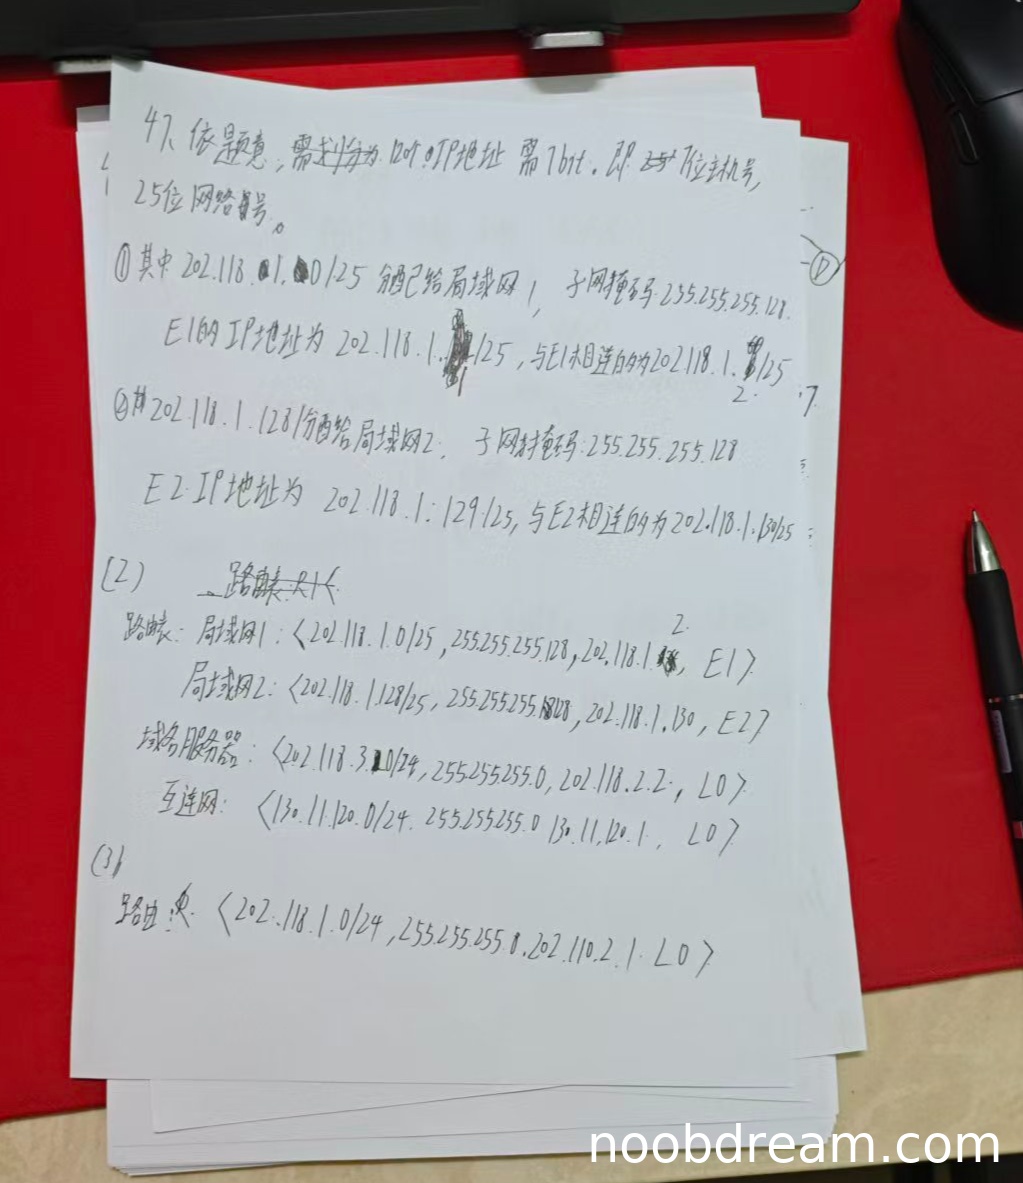 47、依题意,需划分为 120个IP地址 需7bit。即 7位主机号,
25位网络号。
①其中202.118.1.0/25 分配给局域网1, 子网掩码 255.255.255.128.
E1的IP地址为 202.118.1.1/25,与E1相连的为202.118.1.2/25
② 202.118.1.128/分配给局域网2, 子网掩码:255.255.255.128
E2 IP地址为 202.118.1.129/25,与E2相连的为202.118.1.130/25
(2) 路由表:R1<
路由表: 局域网1:<202.118.1.0/25,255.255.255.128,202.118.1.2, E1>
局域网2:<202.118.1.128/25, 255.255.255.128, 202.118.1.130, E2>
域名服务器:<202.118.3.0/24, 255.255.255.0, 202.118.2.2, L0>
互连网: <130.11.120.0/24. 255.255.255.0 130.11.120.1, L0>
(3)
路由: <202.118.1.0/24, 255.255.255.0.202.110.2.1. L0>
noobdream.com